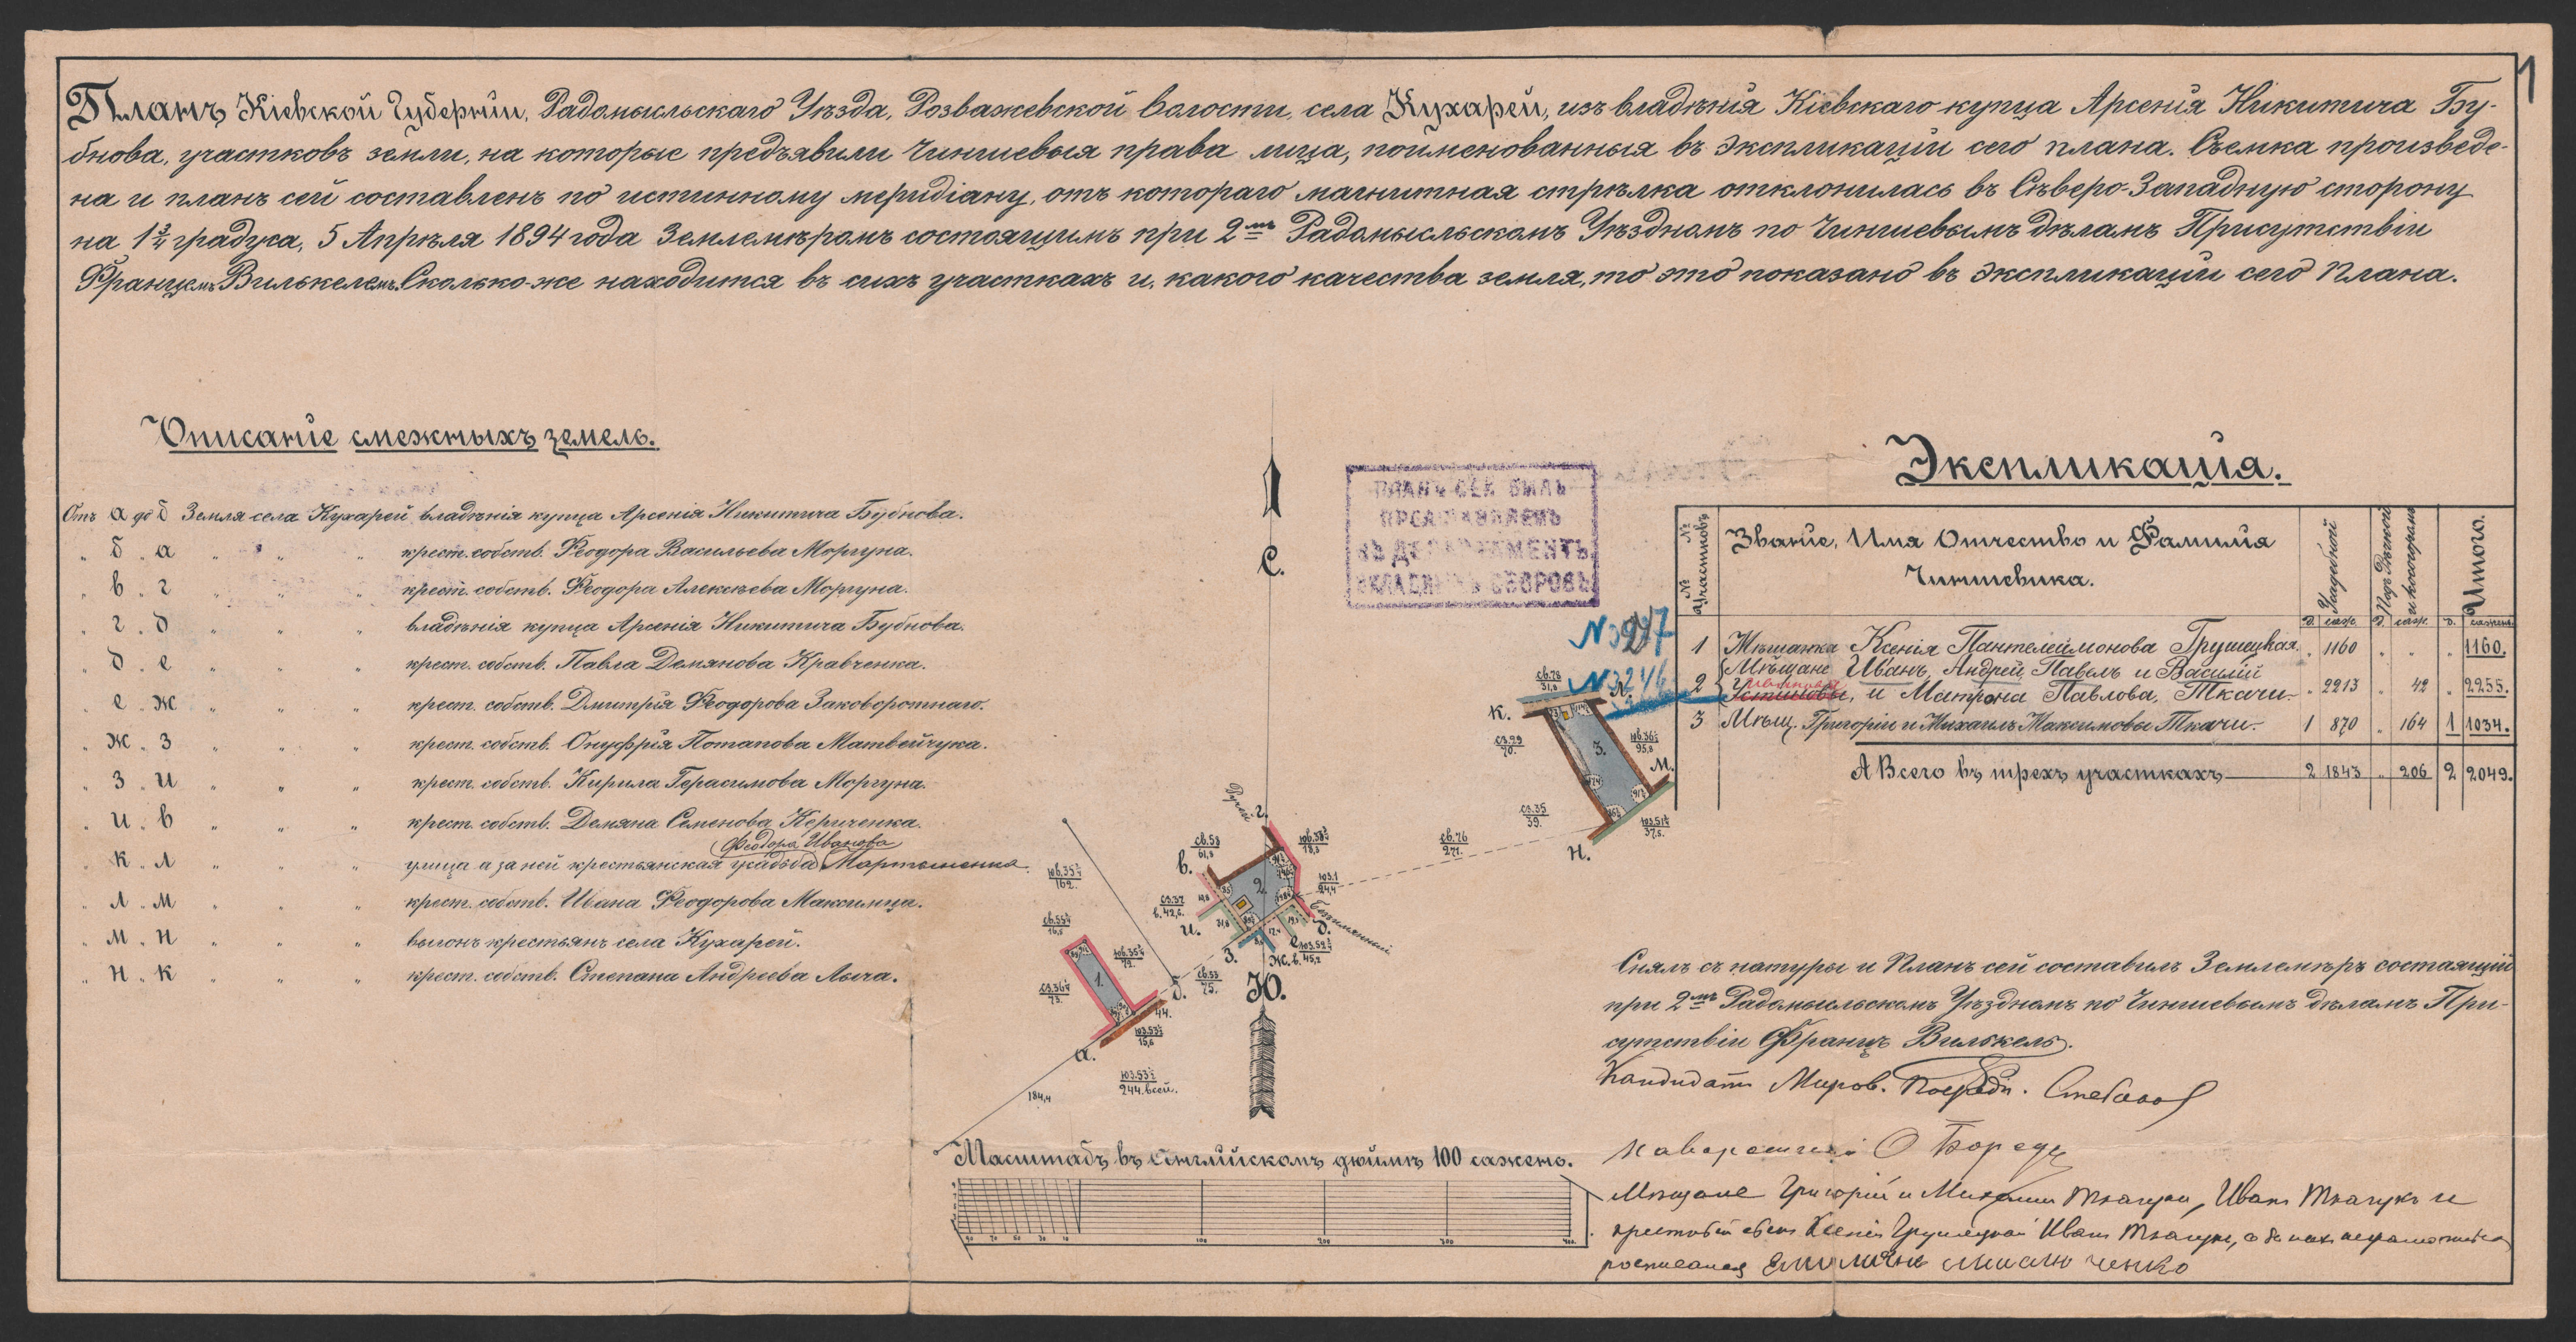 1
Планъ Кіевской Губерніи, Радомысльскаго Уѣзда, Розважевской Волости, села Кухарей, изъ владѣнія Кіевскаго купца Арсенія Никитича Бу-
бнова, участковъ земли, на которые предъявили Чиншевыя права лица, поименованныя въ экспликаціи сего плана. Съемка произведе-
на и планъ сей составленъ по истинному меридіану, отъ котораго магнитная стрѣлка отклонилась въ Сѣверо-Западную сторону
на 1¾ градуса, 5 Апрѣля 1894 года Землемѣромъ состоящимъ при 2мъ Радомысльскомъ Уѣздномъ по Чиншевымъ дѣламъ Присутствіи
Францемъ Вилькелемъ. Сколько-же находится въ сихъ участкахъ и, какого качества земля, то это показано въ экспликаціи сего плана.
Описаніе смежныхъ земель.
Отъ а до б Земля села Кухарей владѣнія купца Арсенія Никитича Бубнова.
„ б „ а „ „ „ крест. собств. Феодора Васильева Моргуна.
„ в „ г „ „ „ крест. собств. Феодора Алексѣева Моргуна.
„ г „ д „ „ „ владѣнія купца Арсенія Никитича Бубнова.
„ д „ е „ „ „ крест. собств. Павла Демянова Кравченка.
„ е „ ж „ „ „ крест. собств. Дмитрія Феодорова Заковоротнаго.
„ ж „ з „ „ „ крест. собств. Онуфрія Потапова Матвейчука.
„ з „ и „ „ „ крест. собств. Кирила Герасимова Моргуна.
„ и „ в „ „ „ крест. собств. Демяна Семенова Кериченка.
Феодора Иванова
„ к „ л „ „ „ улица а за ней крестьянская усадьба Мартыненка.
„ л „ м „ „ „ крест. собств. Ивана Феодорова Максимца.
„ м „ н „ „ „ выгонъ крестьянъ села Кухарей.
„ н „ к „ „ „ крест. собств. Степана Андреева Лыча.
С.
ПЛАНЪ СЕЙ БЫЛЪ
ПРЕДЪЯВЛЯЕМЪ
ВЪ ДЕПАРТАМЕНТЪ
ОКЛАДНЫХЪ СБОРОВЪ
Экспликація.
№ № Участковъ
Званіе, Имя Отчество и Фамилія
Чиншевика.
Усадебной
Подъ Рѣчкой
и косогорам
Итого.
д. саж. д. саж. д. сажень
1 Мѣщанка Ксенія Пантелеймонова Грушецкая. „ 1160 „ „ „ 1160.
2 Мѣщане Иванъ, Андрей, Павелъ и Василій
Устиновы, и Матрона Павлова, Ткачи „ 2213 „ 42 „ 2255.
3 Мѣщ. Григорій и Михаилъ Максимовы Ткачи. 1 870 „ 164 1 1034.
А Всего въ трехъ участкахъ 2 1843 „ 206 2 2049.
№ 3246
св.78
31,8
к.
л.
сз.29
70.
3.
юв.36½
95,8
м.
сз.35
39.
юз.51¼
37,5.
н.
св.76
271.
Ручей
г.
св.58
61,8
юв.38¾
18,3
в.
2.
юз.1
24,4
сз.37
в.42,6.
и.
Безъимянный
д.
з.
ж.
е
юз.52¾
в.45,2
юв.35½
162.
св.55½
16,8
1.
юв.35¼
72.
сз.36¼
73.
св.55
75.
б.
44.
юз.53½
15,6
а.
юз.53½
244.всей.
184,4
Ю.
Масштабъ въ Англійскомъ дюймѣ 100 сажень.
90 70 50 30 10 100 200 300 400.
Снялъ съ натуры и Планъ сей составилъ Землемѣръ состоящій
при 2мъ Радомысльскомъ Уѣздномъ по Чиншевымъ дѣламъ При-
сутствіи Францъ Вилькель.
Кандидатъ Миров. Посредн.
Мѣщане Григорій и Михаилъ Ткачуки, Иванъ Ткачукъ и
Ксеніи Грушецкой Иванъ Ткачукъ, а за нихъ неграмотныхъ
росписался